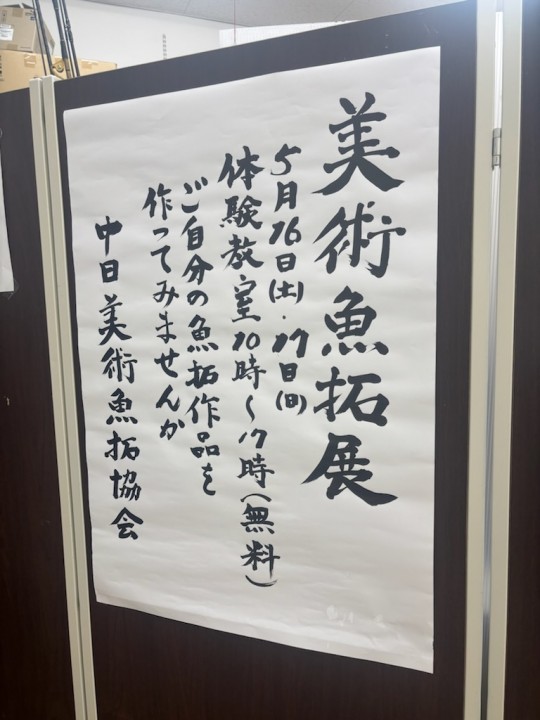 美術魚拓展
5月16日(土)・17日(日)
体験教室10時〜17時(無料)
ご自分の魚拓作品を
作ってみませんか
中日美術魚拓協会